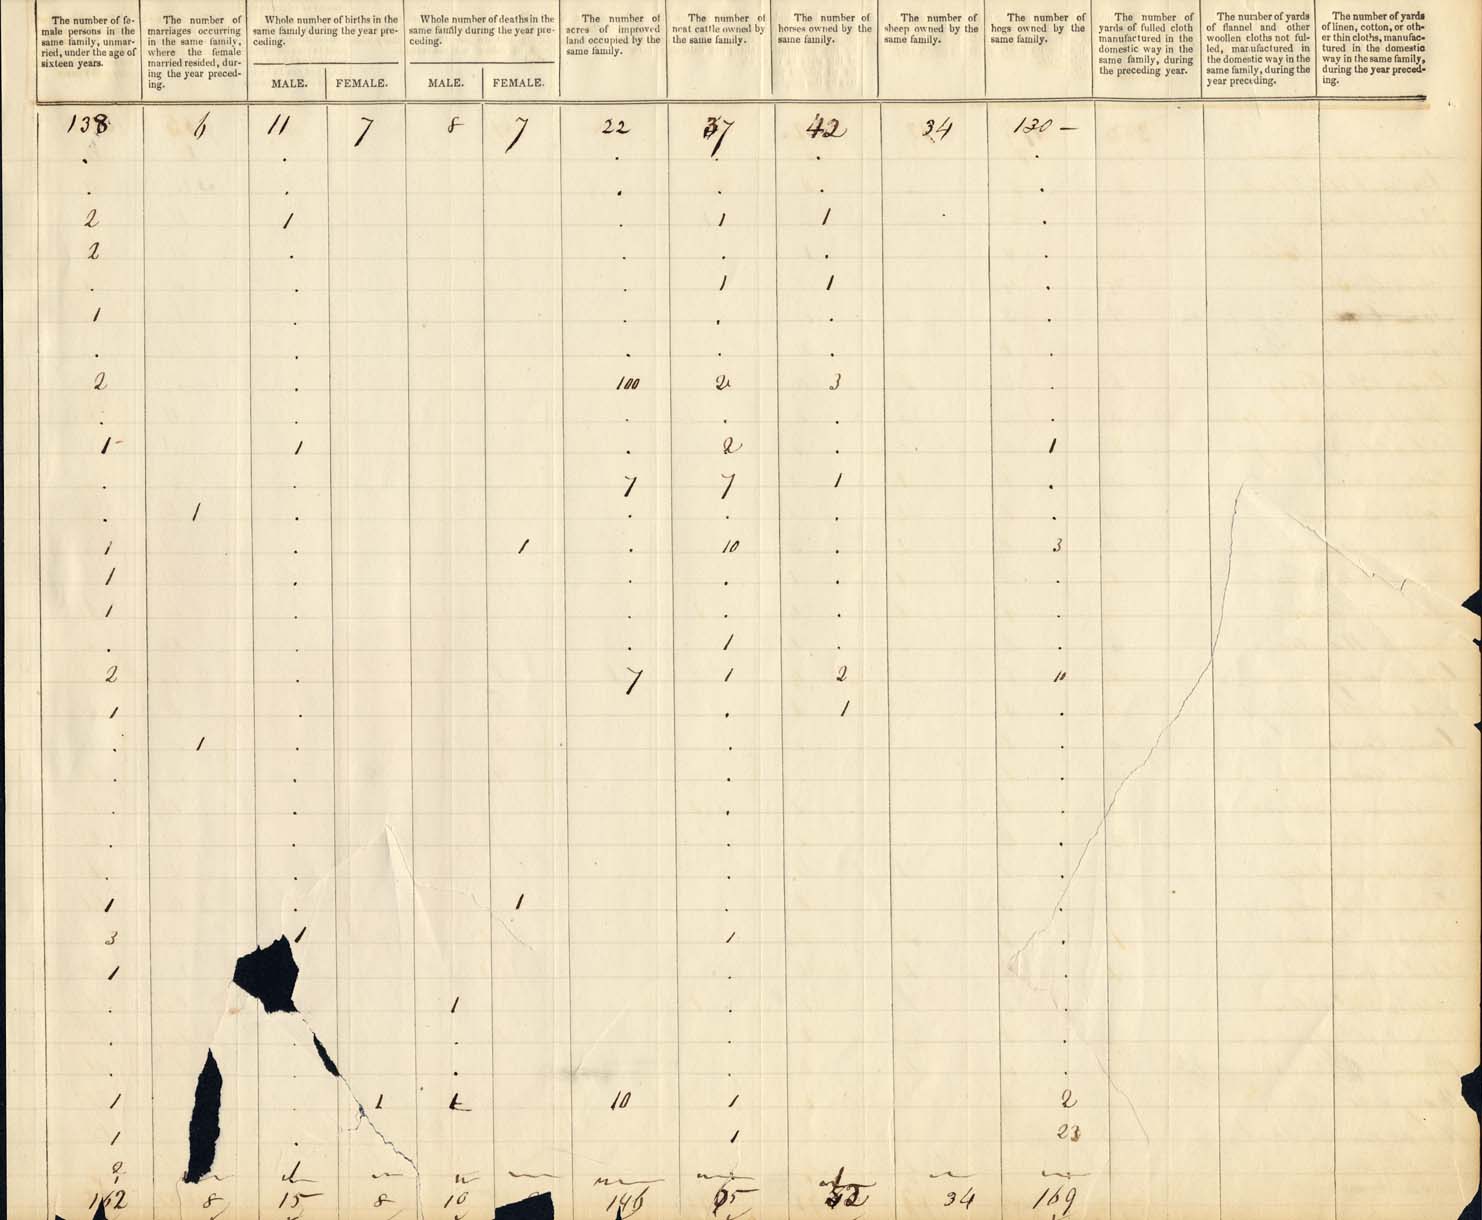 The number of fe-
male persons in the
same family, unmar-
ried, under the age of
sixteen years.
The number of
marriages occurring
in the same family,
where the female
married resided, dur-
ing the year preced-
ing.
Whole number of births in the
same family during the year pre-
ceding.
MALE. FEMALE.
Whole number of deaths in the
same family during the year pre-
ceding.
MALE. FEMALE.
The number of
acres of improved
land occupied by the
same family.
The number of
neat cattle owned by
the same family.
The number of
horses owned by the
same family.
The number of
sheep owned by the
same family.
The number of
hogs owned by the
same family.
The number of
yards of fulled cloth
manufactured in the
domestic way in the
same family, during
the preceding year.
The number of yards
of flannel and other
woollen cloths not ful-
led, manufactured in
the domestic way in the
same family, during the
year preceding.
The number of yards
of linen, cotton, or oth-
er thin cloths, manufac-
tured in the domestic
way in the same family,
during the year preced-
ing.
138 6 11 7 8 7 22 37 42 34 130 –
2 1 1 1
2
1 1
1
2 100 2 3
1 1 2 1
7 7 1
1
1 1 10 3
1
1
1
2 7 1 2 10
1 1
1
1 1
3 1 1
1
1
1 1 1 10 1 2
1 1 23
2 1 1
162 8 15 8 10 146 65 52 34 169